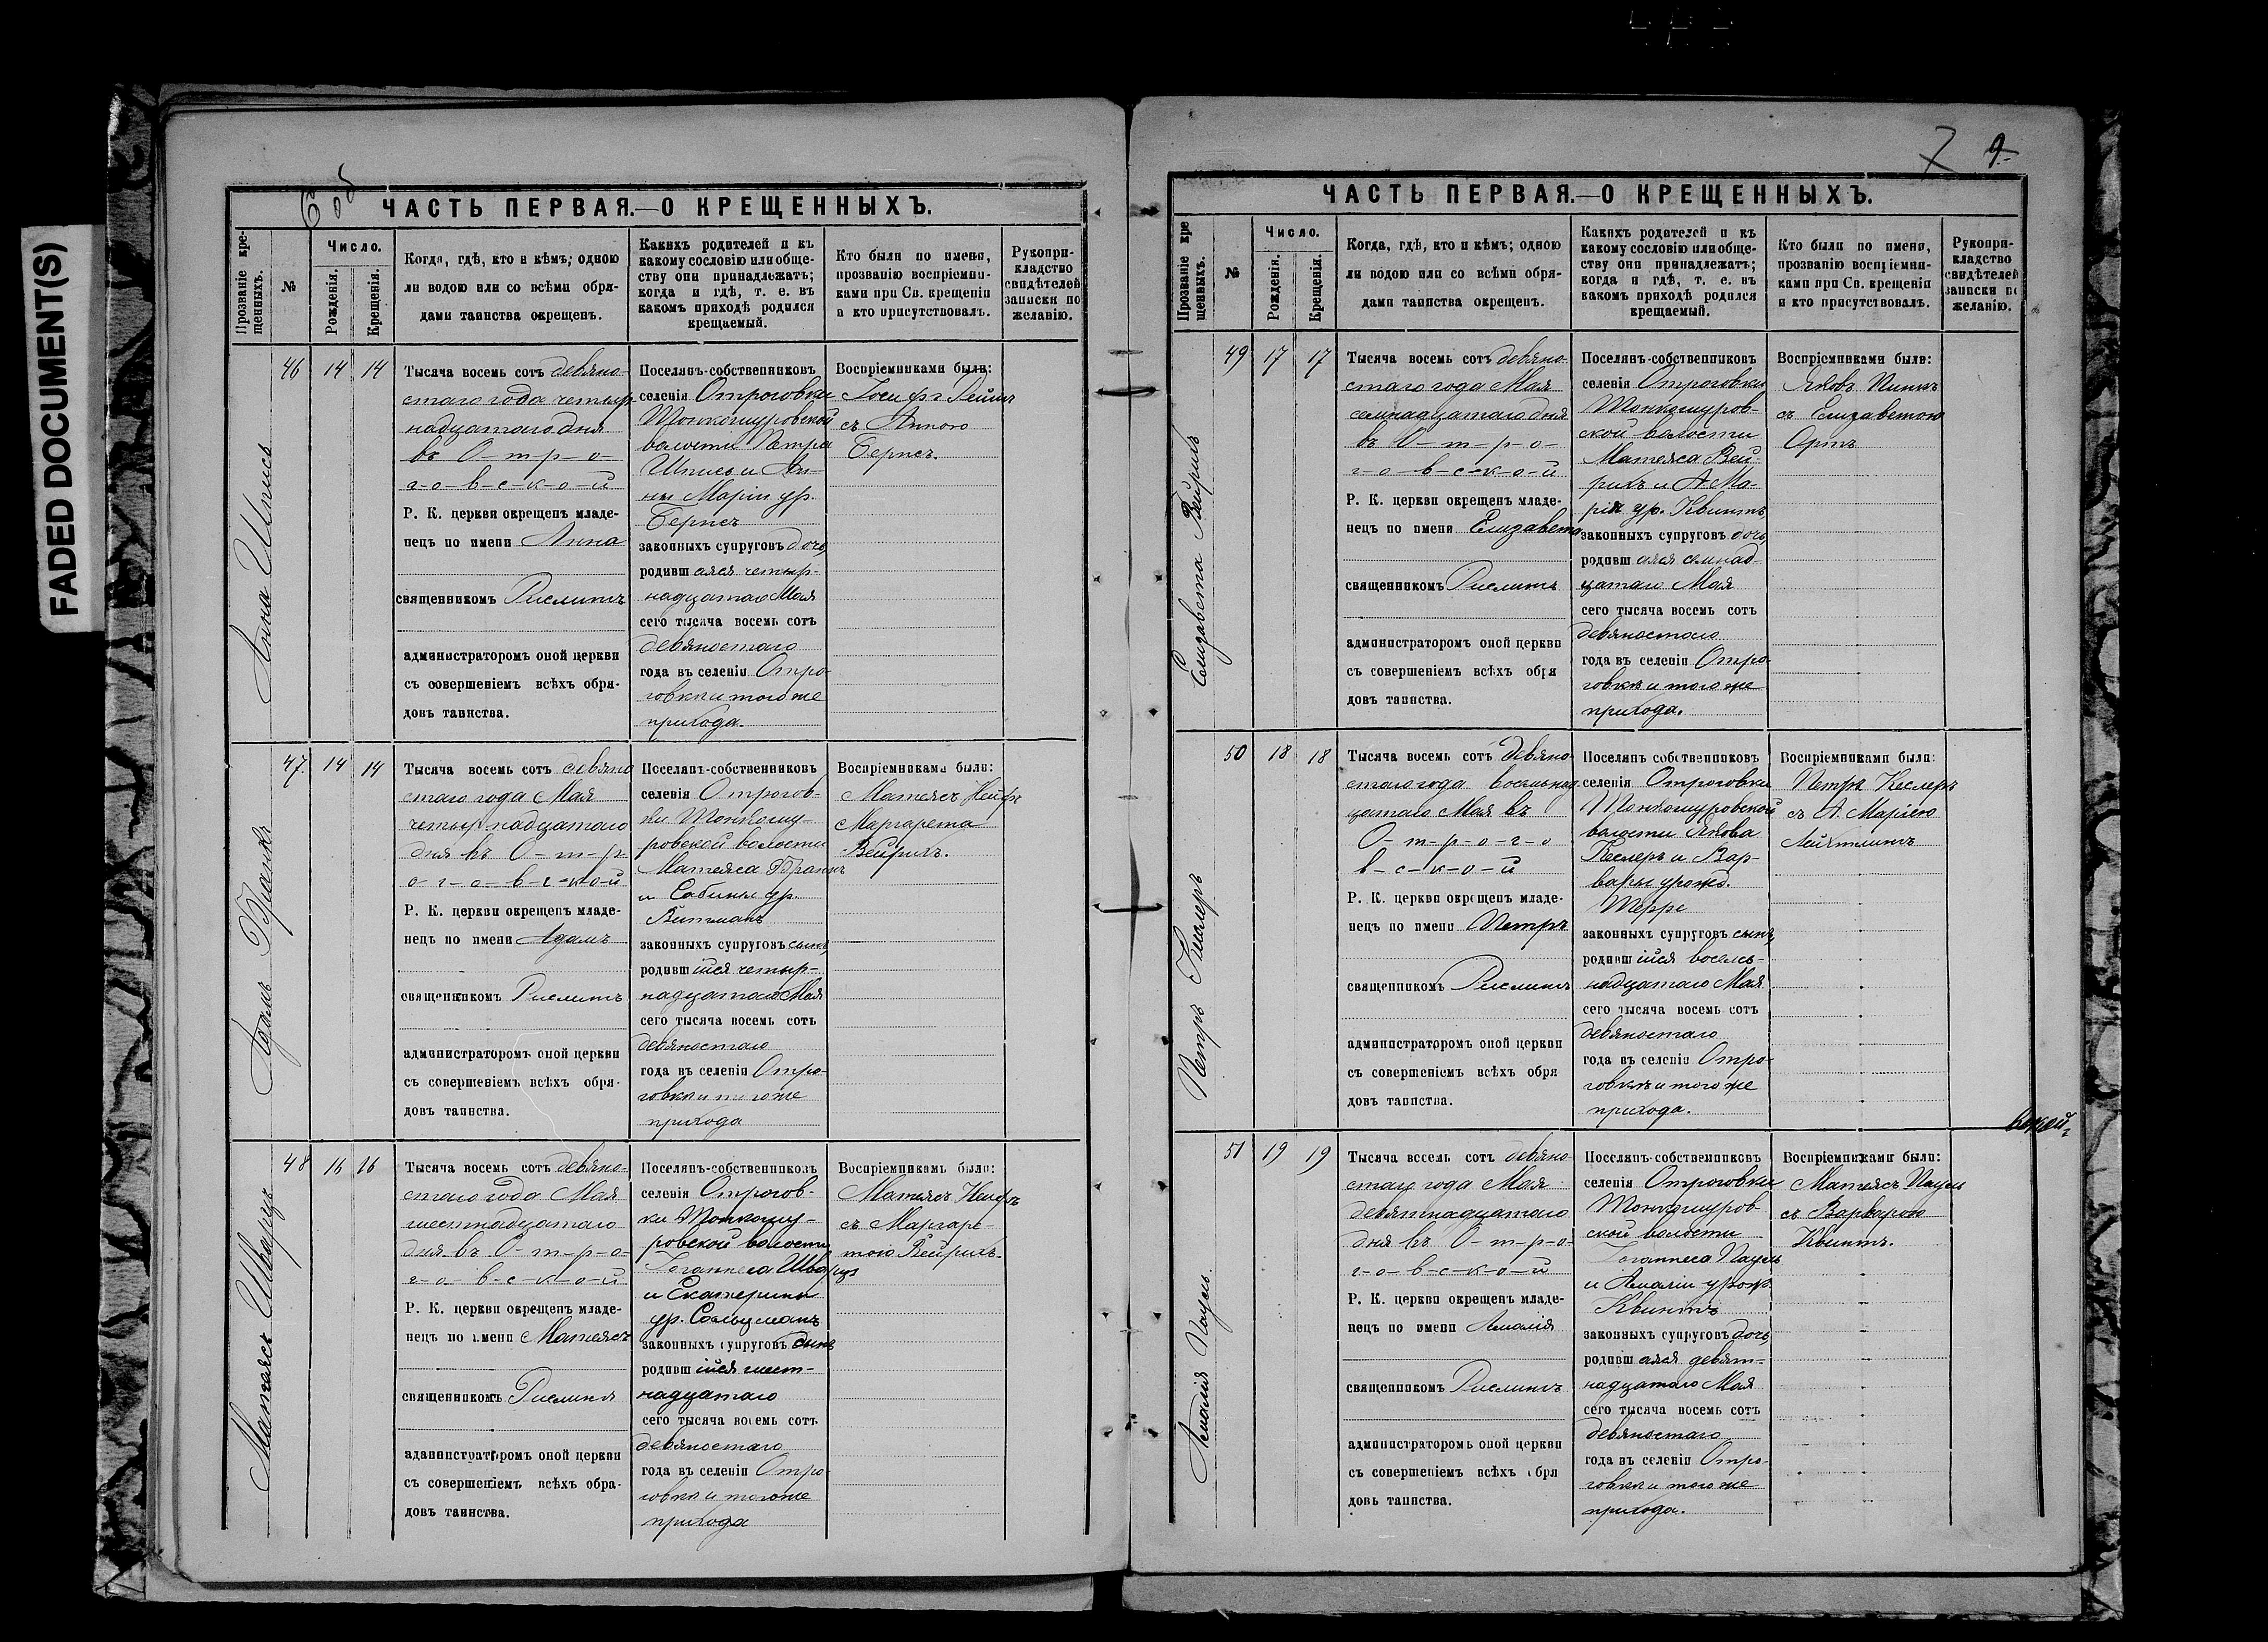 FADED DOCUMENT(S)
6 об
ЧАСТЬ ПЕРВАЯ.—О КРЕЩЕННЫХЪ.
Прозваніе кре-
щенныхъ.
№
Число.
Рожденія.
Крещенія.
Когда, гдѣ, кто и кѣмъ; одною
ли водою или со всѣми обря-
дами таинства окрещенъ.
Какихъ родителей и къ
какому сословію или обще-
ству они принадлежатъ;
когда и гдѣ, т. е. въ
какомъ приходѣ родился
крещаемый.
Кто были по имени,
прозванію воспріемни-
ками при Св. крещеніи
и кто присутствовалъ.
Рукопри-
кладство
свидѣтелей
записки по
желанію.
Анна Шпись
46
14
14
Тысяча восемь сотъ девяно-
стаго года четыр-
надцатаго дня
въ О-т-р-о-
г-о-в-с-к-о-й
Р. К. церкви окрещенъ младе-
нецъ по имени Анна
священникомъ Рислингъ
администраторомъ оной церкви
съ совершеніемъ всѣхъ обря-
довъ таинства.
Поселянъ-собственниковъ
селенія Отроговки
Тонкошуровской
волости Петра
Шпись и Ан-
ны Маріи ур.
Бернсъ
законныхъ супруговъ дочь,
родившаяся четыр-
надцатаго Мая
сего тысяча восемь сотъ
девяностаго
года въ селеніи Отро-
говки и того же
прихода.
Воспріемниками были:
Іосифъ Геймъ
съ Анною
Бернсъ.
Адамъ Франкъ
47.
14
14
Тысяча восемь сотъ девяно
стаго года Мая
четыр-надцатаго
дня въ О-т-р-
о-г-о-в-с-к-о-й
Р. К. церкви окрещенъ младе-
нецъ по имени Адамъ
священникомъ Рислингъ
администраторомъ оной церкви
съ совершеніемъ всѣхъ обря-
довъ таинства.
Поселянъ-собственниковъ
селенія Отрогов-
ки Тонкошу-
ровской волости
Матеяса Франкъ
и Сабины ур.
Витманъ
законныхъ супруговъ сынъ,
родившійся четыр-
надцатаго Мая
сего тысяча восемь сотъ
девяностаго
года въ селеніи Отро-
говки и того же
прихода
Воспріемниками были:
Матеясъ Нейфъ
Маргарета
Вейрихъ.
Матеясъ Шварцъ
48
16
16
Тысяча восемь сотъ девяно-
стаго года Мая
шестнадцатаго
дня въ О-т-р-о-
г-о-в-с-к-о-й
Р. К. церкви окрещенъ младе-
нецъ по имени Матеясъ
священникомъ Рислингъ
администраторомъ оной церкви
съ совершеніемъ всѣхъ обря-
довъ таинства.
Поселянъ-собственниковъ
селенія Отрогов-
ки Тонкошу-
ровской волости
Іоганнеса Шварцъ
и Екатерины
ур. Сальцманъ
законныхъ супруговъ сынъ
родившійся шест-
надцатаго
сего тысяча восемь сотъ
девяностаго
года въ селеніи Отро-
говки и того же
прихода
Воспріемниками были:
Матеясъ Нейфъ
съ Маргаре-
тою Вейрихъ.
7 9
ЧАСТЬ ПЕРВАЯ.—О КРЕЩЕННЫХЪ.
Прозваніе кре
щенныхъ.
№
Число.
Рожденія.
Крещенія.
Когда, гдѣ, кто и кѣмъ; одною
ли водою или со всѣми обря-
дами таинства окрещенъ.
Какихъ родителей и къ
какому сословію или обще-
ству они принадлежатъ;
когда и гдѣ, т. е. въ
какомъ приходѣ родился
крещаемый.
Кто были по имени,
прозванію воспріемни-
ками при Св. крещеніи
и кто присутствовалъ.
Рукопри-
кладство
свидѣтелей
записки по
желанію.
Елизавета Вейрихъ
49
17
17
Тысяча восемь сотъ девяно-
стаго года Мая
семнадцатаго дня
въ О-т-р-о-
г-о-в-с-к-о-й
Р. К. церкви окрещенъ младе-
нецъ по имени Елизавета
священникомъ Рислингъ
администраторомъ оной церкви
съ совершеніемъ всѣхъ обря
довъ таинства.
Поселянъ-собственниковъ
селенія Отроговки
Тонкошуров-
ской волости
Матеяса Вей-
рихъ и А. Ма-
ріи ур. Квинтъ
законныхъ супруговъ дочь,
родившаяся семнад-
цатаго Мая
сего тысяча восемь сотъ
девяностаго
года въ селеніи Отро-
говки и того же
прихода.
Воспріемниками были:
Яковъ Пиннъ
съ Елизаветою
Ортъ
Петръ Кеслеръ
50
18
18
Тысяча восемь сотъ девяно-
стаго года восемьнад-
цатаго Мая въ
О-т-р-о-г-о
в-с-к-о-й
Р. К. церкви окрещенъ младе-
нецъ по имени Петръ
священникомъ Рислингъ
администраторомъ оной церкви
съ совершеніемъ всѣхъ обря
довъ таинства.
Поселянъ собственниковъ
селенія Отроговки
Тонкошуровской
волости Якова
Кеслеръ и Вар-
вары урожд.
Шерре
законныхъ супруговъ сынъ,
родившійся восемь-
надцатаго Мая
сего тысяча восемь сотъ
девяностаго
года въ селеніи Отро-
говки и того же
прихода.
Воспріемниками были:
Петръ Кеслеръ
съ А. Маріею
Лейтлингъ
Амалія Пауль.
51
19
19
Тысяча восемь сотъ девяно
стаго года Мая
девятнадцатаго
дня въ О-т-р-о-
г-о-в-с-к-о-й
Р. К. церкви окрещенъ младе-
нецъ по имени Амалія
священникомъ Рислингъ
администраторомъ оной церкви
съ совершеніемъ всѣхъ обря
довъ таинства.
Поселянъ-собственниковъ
селенія Отроговки
Тонкошуров-
ской волости
Іоганнеса Пауль
и Амаліи урож.
Квинтъ
законныхъ супруговъ дочь,
родившаяся девят-
надцатаго Мая
сего тысяча восемь сотъ
девяностаго
года въ селеніи Отро-
говки и того же
прихода.
Воспріемниками были:
Матеясъ Пауль
съ Варварою
Квинтъ.